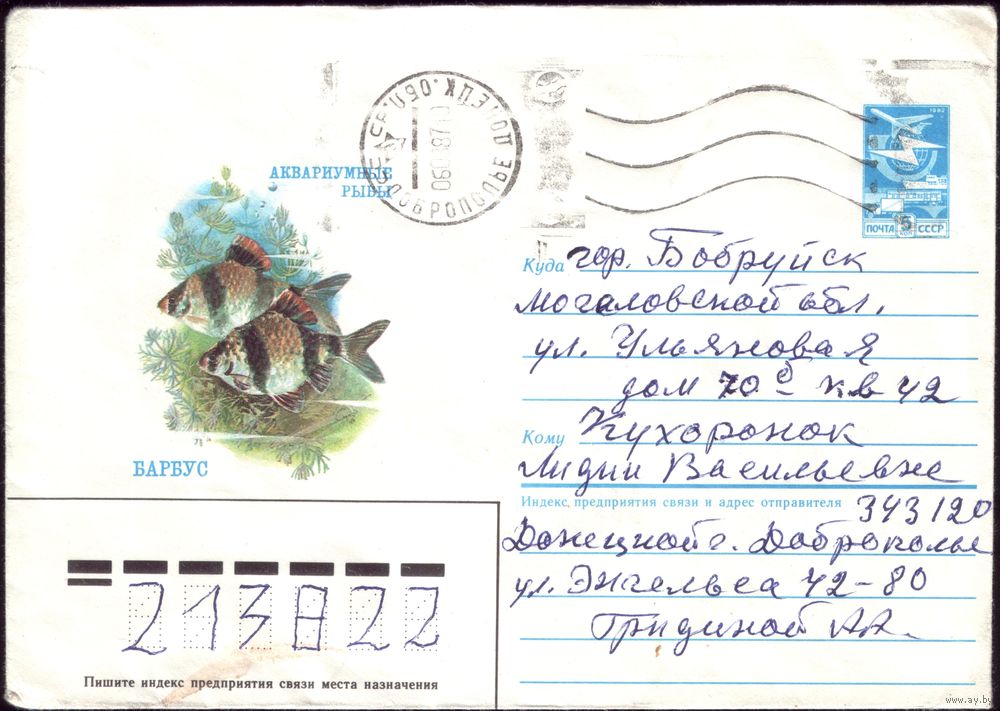 ДОНЕЦК. ОБЛ.
ДОБРОПОЛЬЕ
АКВАРИУМНЫЕ
РЫБЫ
БАРБУС
1982
ПОЧТА 5 КОП СССР
Куда гор. Бобруйск
Могаловской обл.
ул. Ульяновая
дом 70 кв 42
Кому Кухоронок
Лидии Васильевне
Индекс предприятия связи и адрес отправителя
343120
Донецкой г. Доброполье
ул. Энгельса 42-80
Гридиной АА.
213822
Пишите индекс предприятия связи места назначения
www.ay.by